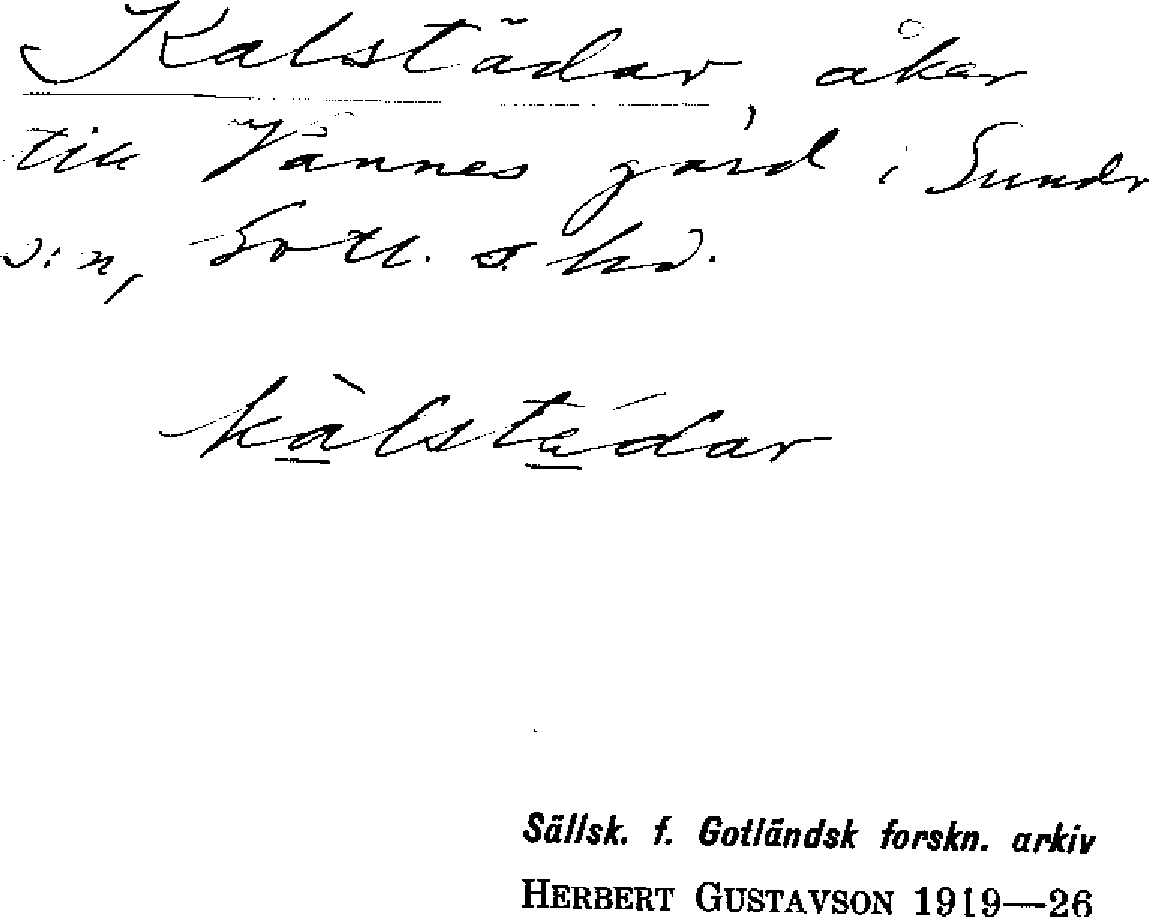 Kalstädar, åker
till Vännes gård i Sundr
s:n, Gotl. s. hd.
kàlstädar
Sällsk. f. Gotländsk forskn. arkiv
HERBERT GUSTAVSON 1919—26